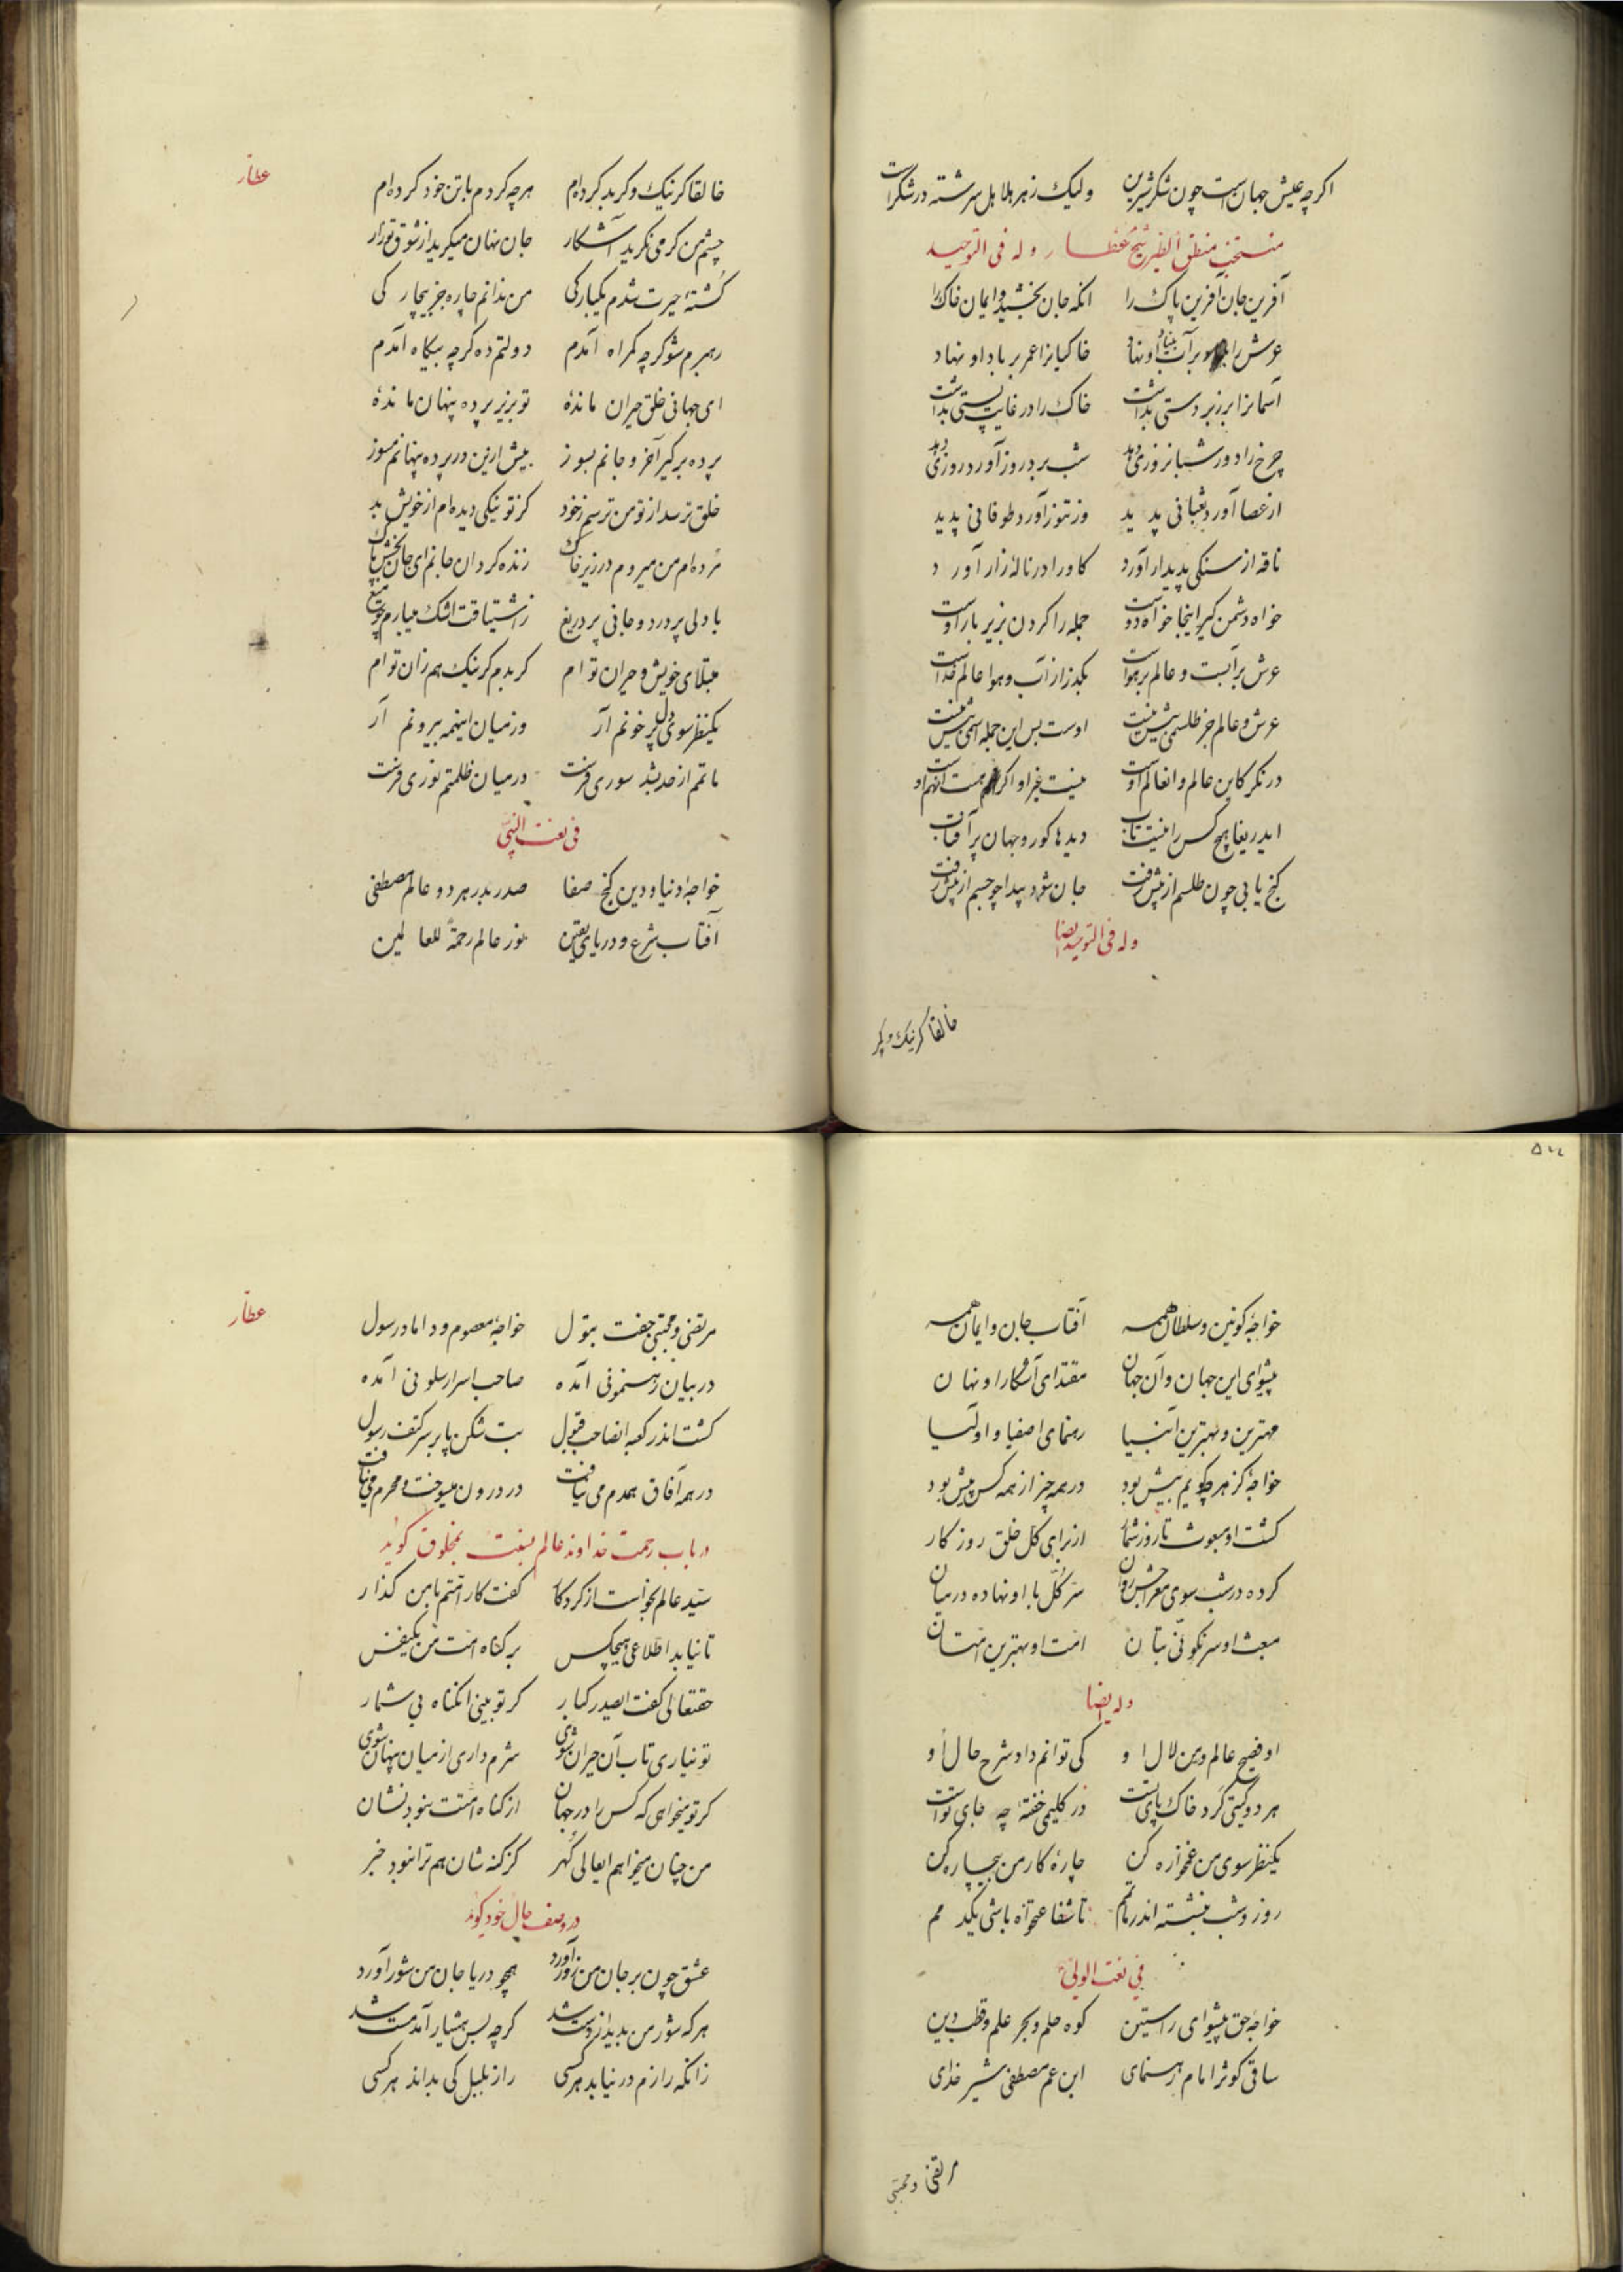 اکرچه عیش جهانست چون شکر شیرین ولیک زهر هلاهل سرشته در شکرست
منتخب منطق الطیر شیخ عطار وله فی التوحید
آفرین جان آفرین پاک را انکه جان بخشید و ایمان خاک را
عرش را بر آب بنیاد او نهاد خاکیانرا عمر بر باد او نهاد
آسمانرا بر زبردستی بداشت خاک را در غایت پستی بداشت
چرخ را دور شبانروزی دهد شب برد روز آورد روزی دهد
از عصا آورد ثعبانی پدید وز تنور آورد طوفانی پدید
ناقه از سنکی پدیدار آورد کاو را در نالهٔ زار آورد
خواه دشمن کیر اینجا خواه دوست جمله را کردن بزیر بار اوست
عرش بر آبست و عالم بر هواست بکذر از آب و هوا عالم خداست
عرش و عالم جز طلسمی بیش نیست اوست بس این جمله اسمی بیش نیست
درنکر کاین عالم و انعالم اوست نیست غیر او اکر هست انهم او
ایدریغا هیچ کس را نیست تاب دیدها کور و جهان پر آفتاب
کنج یابی چون طلسم از پیش رفت جان شود پیدا چو جسم از پیش رفت
وله فی التوحید ایضا
خالقا کر نیک و کر
عطار
خالقا کر نیک و کر بد کرده‌ام هرچه کردم با تن خود کرده‌ام
چشم من کر می نکرید آشکار جان نهان میکرید از شوق تو زار
کشتهٔ حیرت شدم یکبارکی من ندانم چاره جز بیچارکی
رهبرم شو کرچه کمراه آمدم دولتم ده کرچه بیکاه آمدم
ای جهانی خلق حیران ماندهٔ تو بزیر پرده پنهان ماندهٔ
پرده برکیر آخر و جانم بسوز بیش ازین در پرده پنهانم مسوز
خلق ترسد از تو من ترسم ز خود کز تو نیکی دیده‌ام از خویش بد
مرده‌ام من میروم در زیر خاک زنده کردان جانم ای جان بخش پاک
با دلی پر درد و جانی پر دریغ ز اشتیاقت اشک میبارم چو میغ
مبتلای خویش و حیران توام کر بدم کر نیک هم زان توام
یکنظر سوی دل پر خونم آر وز میان اینهمه بیرونم آر
ماتم از حد بشد سوری فرست در میان ظلمتم نوری فرست
فی نعت النبی
خواجهٔ دنیا و دین کنج صفا صدر بدر هر دو عالم مصطفی
آفتاب شرع و دریای یقین نور عالم رحمة للعالمین
۵۷۷
خواجهٔ کونین و سلطان همه آفتاب جان و ایمان همه
پیشوای این جهان و آن جهان مقتدای آشکارا و نهان
مهترین و بهترین انبیا رهنمای اصفیا و اولیا
خواجهٔ کز هرچه کویم بیش بود در همه چیز از همه کس پیش بود
کشت او مبعوث تا روز شمار از برای کل خلق روزکار
کرده در شب سوی معراجش روان سر کل با او نهاده در میان
مبعث او سرنکونی بتان امت او بهترین امتان
وله ایضا
او فصیح عالم و من لال او کی توانم داد شرح حال او
هر دو کیتی کرد خاک پای تست در کلیمی خفتهٔ چه جای تست
یکنظر سوی من غمخواره کن چارهٔ کار من بیچاره کن
روز و شب بنشسته اندر ماتمم تا شفاعتخواه باشی یکدمم
فی نعت الولی
خواجهٔ حق پیشوای راستین کوه حلم و بحر علم و قطب دین
ساقی کوثر امام رهنمای ابن عم مصطفی شیر خدای
مرتضی و مجتبی
عطار
مرتضی و مجتبی جفت بتول خواجهٔ معصوم و داماد رسول
در بیان رهنمونی آمده صاحب اسرار سلونی آمده
کشت اندر کعبه انصاحب قبول بت شکن با بر سر کتف رسول
در همه آفاق همدم می نیافت در درون میسوخت و محرم می نیافت
در باب رحمت خداوند عالم نسبت بمخلوق کوید
سید عالم بخواست از کردکار کفت کار امتم با من کذار
تا نیابد اطلاعی هیچکس بر کناه امت من یکنفس
حقتعالی کفت ایصدر کبار کر تو بینی انکناه بی شمار
تو نیاری تاب آن حیران شوی شرم داری از میان پنهان شوی
کر تو میخواهی که کس را در جهان از کناه امتت نبود نشان
من چنان میخواهم ایعالی کهر کز کنه شان هم ترا نبود خبر
در وصف حال خود کوید
عشق چون بر جان من زور آورد همچو دریا جان من شور آورد
هر که شور من بدید از دست شد کرچه بس هشیار آمد مست شد
زانکه رازم درنیابد هر کسی راز بلبل کی بداند هر کسی